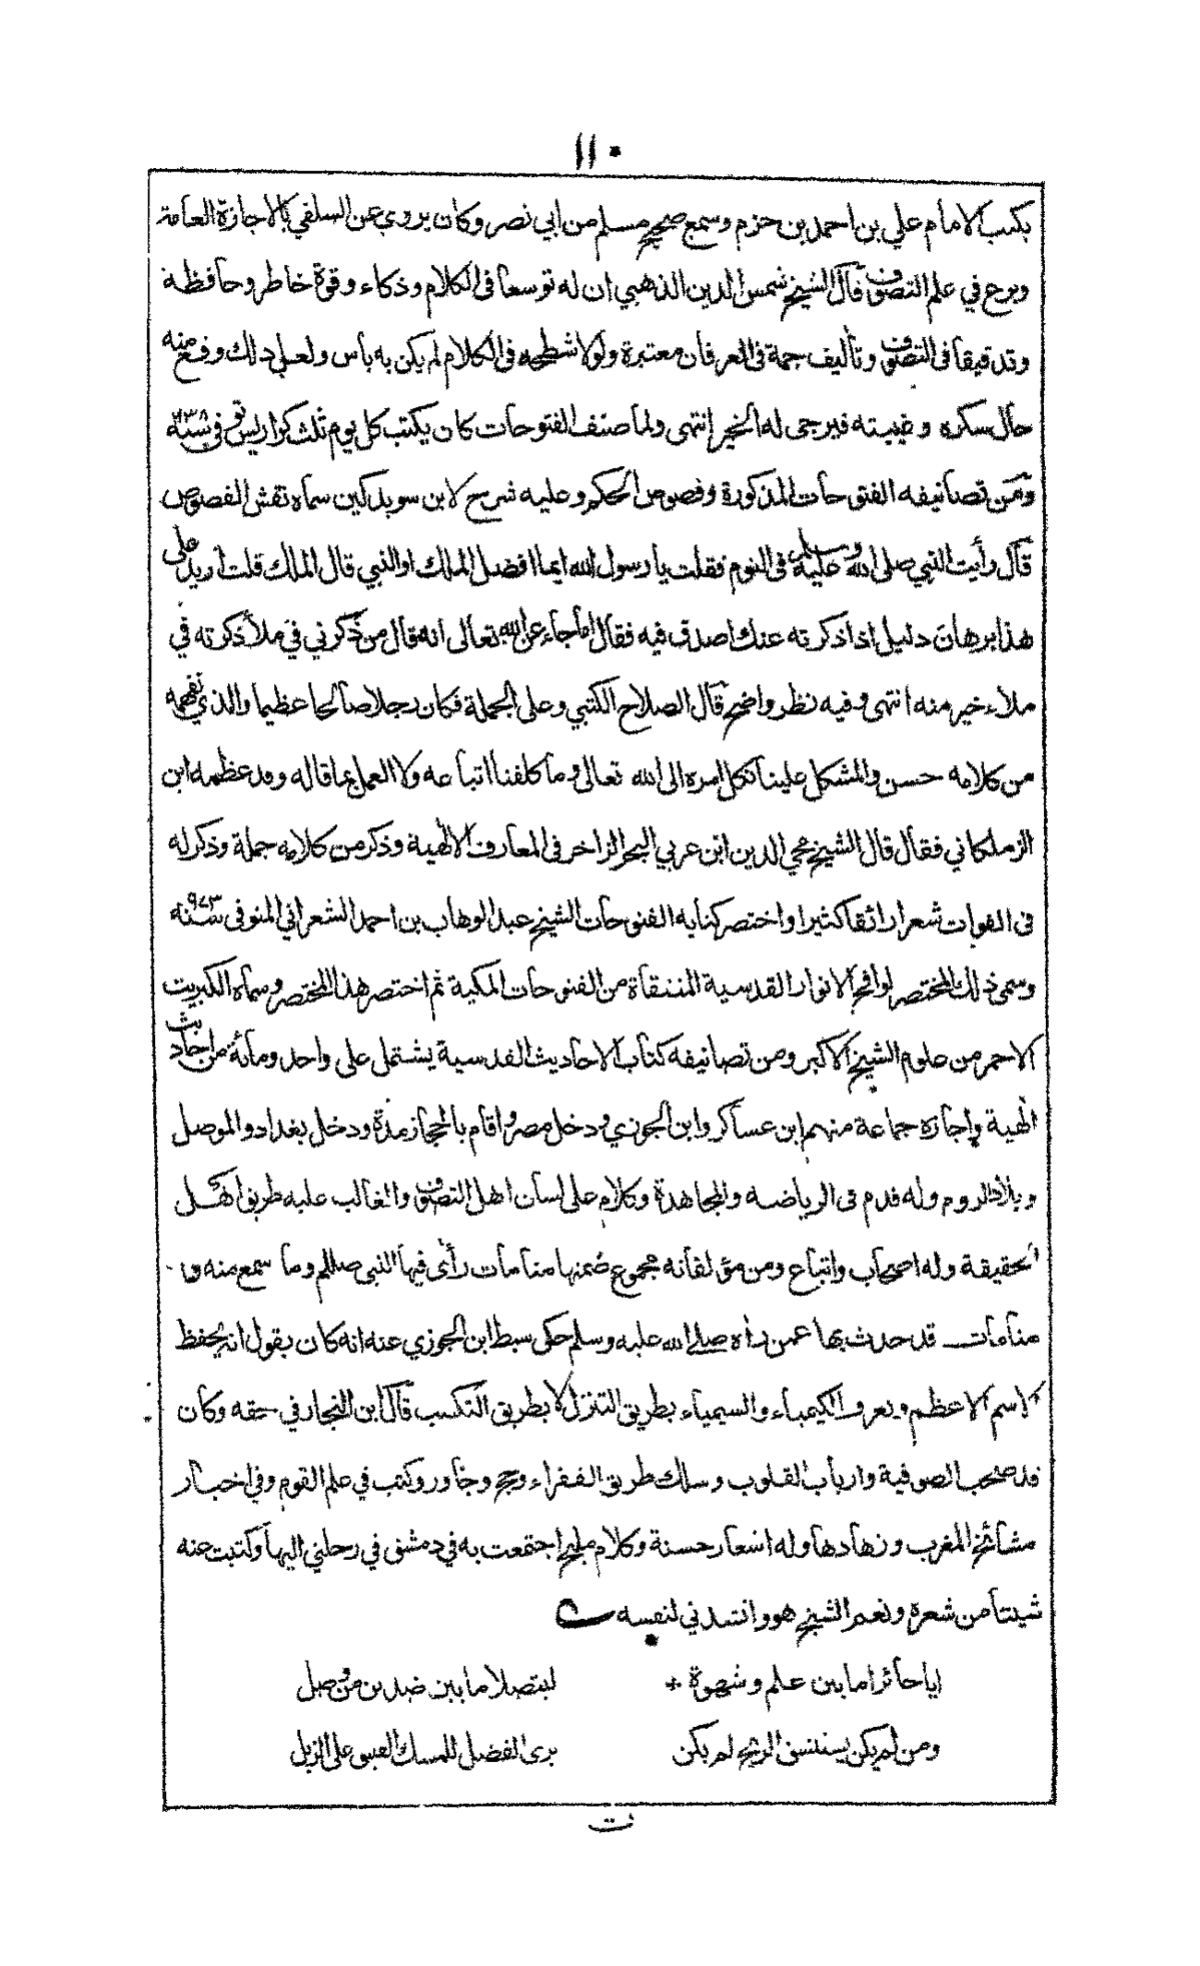 ١١٠
بكتب الامام علي بن احمد بن حزم وسمع صحيح مسلم من ابي نصر وكان يروي عن السلفي بالاجازة العامة
وبرع في علم التصوف قال الشيخ شمس الدين الذهبي ان له توسعا في الكلام وذكاء وقوة خاطر وحافظة
وتدقيقا في التصوف وتأليف جمة في العرفان معتبرة ولولا شطحه في الكلام لم يكن به بأس ولعل ذلك وقع منه
حال سكره وغيبته فيرجى له الخير انتهى ولما صنف الفتوحات كان يكتب كل يوم ثلث كراريس توفي سنة ٦٣٨
ومن تصانيفه الفتوحات المذكورة وفصوص الحكم وعليه شرح لابن سويدكين سماه نقش الفصوص
قال رأيت النبي صلى الله عليه وسلم في النوم فقلت يا رسول الله ايما افضل الملك او النبي قال الملك قلت اريد على
هذا برهان دليل اذا ذكرته عنك اصدق فيه فقال اما جاء عن الله تعالى انه قال من ذكرني في ملأ ذكرته في
ملاء خير منه انتهى وفيه نظر واضح قال الصلاح الكتبي وعلى الجملة فكان رجلا صالحا عظيما والذي نفهمه
من كلامه حسن والمشكل علينا نكل امره الى الله تعالى وما كلفنا اتباعه ولا العمل بما قاله وقد عظمه ابن
الزملكاني فقال قال الشيخ محي الدين ابن عربي البحر الزاخر في المعارف الالهية وذكر من كلامه جملة وذكر له
في الفوات شعرا رائقا كثيرا واختصر كتابه الفتوحات الشيخ عبد الوهاب بن احمد الشعراني المتوفى سنة ٩٧٣
وسمى ذلك المختصر لواقح الانوار القدسية المنتقاة من الفتوحات المكية ثم اختصر هذا المختصر وسماه الكبريت
الاحمر من علوم الشيخ الاكبر ومن تصانيفه كتاب الاحاديث القدسية يشتمل على واحد ومائة من احاديث
الهية واجازه جماعة منهم ابن عساكر وابن الجوزي ودخل مصر واقام بالحجاز مدة ودخل بغداد والموصل
وبلاد الروم وله قدم في الرياضه والمجاهدة وكلام على لسان اهل التصوف والغالب عليه طريق اهل
الحقيقة وله اصحاب واتباع ومن مؤلفاته مجموع ضمنها منامات رأى فيها النبي صللم وما سمع منه و
منامات قد حدث بها عمن رأه صلى الله عليه وسلم حكى سبط ابن الجوزي عنه انه كان يقول انه يحفظ
الاسم الاعظم ويعرف الكيمياء والسيمياء بطريق التنزل لا بطريق التكسب قال ابن النجار في حقه وكان
قد صحب الصوفية وارباب القلوب وسلك طريق الفقراء وحج وجاور وكتب في علم القوم وفي اخبار
مشائخ المغرب وزهادها وله اشعار حسنة وكلام مليح اجتمعت به في دمشق في رحلتي اليها وكتبت عنه
شيئا من شعره ونعم الشيخ هو وانشدني لنفسه
ايا حائرا ما بين علم وشهوة + ليتصلا ما بين ضدين من وصل
ومن لم يكن يستنشق الريح لم يكن يرى الفضل للمسك العبق على الزبل
ت